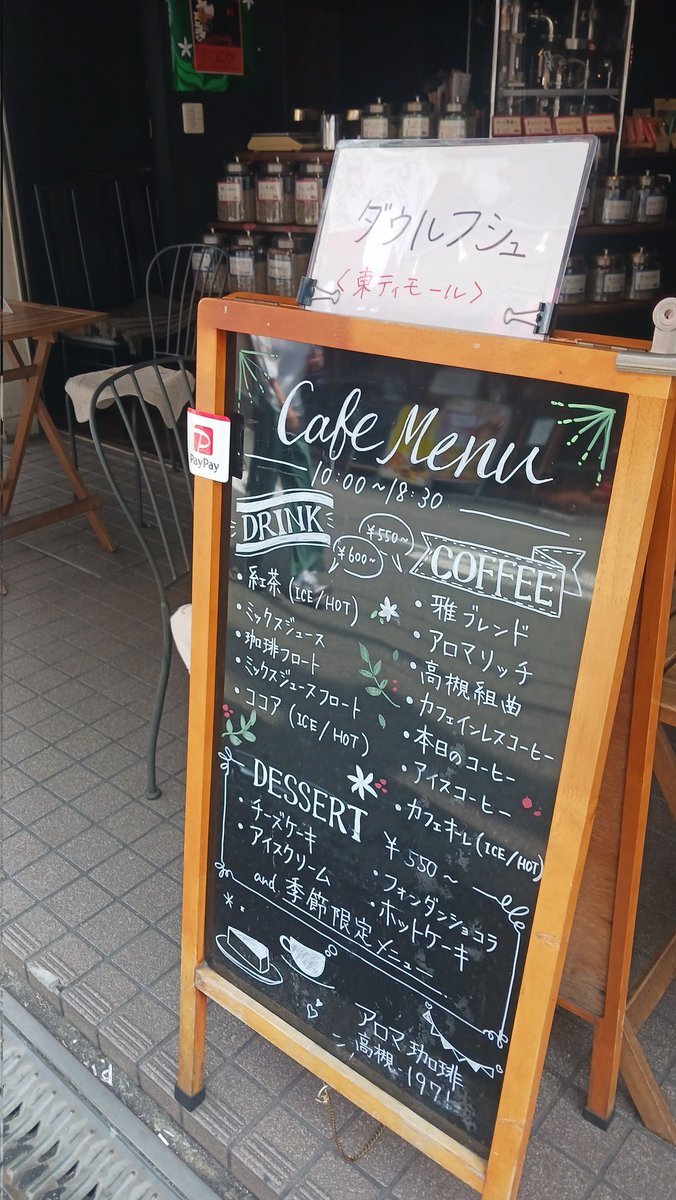 ダウルフシュ
〈東ティモール〉
Cafe Menu
10:00~18:30
PayPay
DRINK
¥600~
・紅茶 (ICE/HOT)
・ミックスジュース
・珈琲フロート
・ミックスジュースフロート
・ココア (ICE/HOT)
¥550~
COFFEE
・雅ブレンド
・アロマリッチ
・高槻組曲
・カフェインレスコーヒー
・本日のコーヒー
・アイスコーヒー
・カフェオーレ (ICE/HOT)
DESSERT
¥550~
・チーズケーキ
・アイスクリーム
・フォンダンショコラ
・ホットケーキ
and 季節限定メニュー
アロマ珈琲
高槻-1971